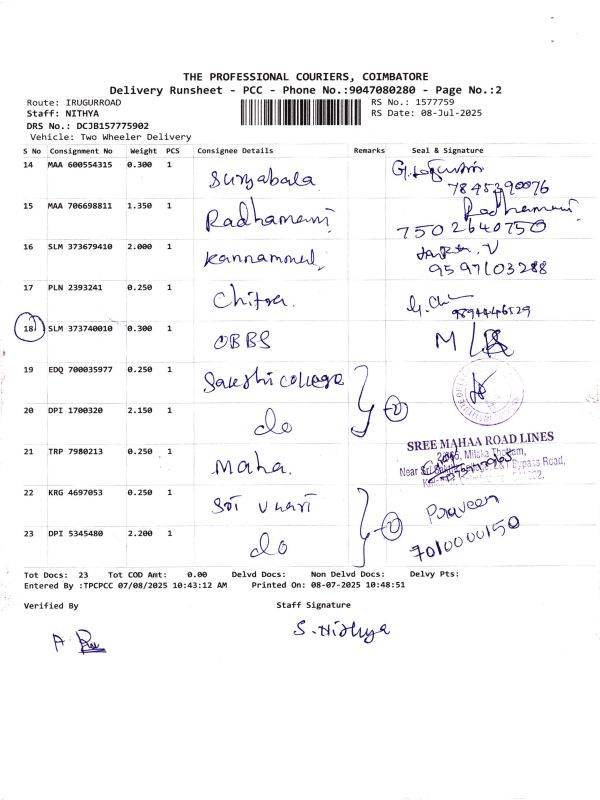 THE PROFESSIONAL COURIERS, COIMBATORE
Delivery Runsheet - PCC - Phone No.:9047080280 - Page No.:2
Route: IRUGURROAD RS No.: 1577759
Staff: NITHYA RS Date: 08-Jul-2025
DRS No.: DCJB157775902
Vehicle: Two Wheeler Delivery
S No Consignment No Weight PCS Consignee Details Remarks Seal & Signature
14 MAA 600554315 0.300 1 Suryabala
7845390076
15 MAA 706698811 1.350 1 Radhamani Radhamani
7502640750
16 SLM 373679410 2.000 1 Kannammal
9597103288
17 PLN 2393241 0.250 1 Chitra. G. Chi
9894446529
18 SLM 373740010 0.300 1 OBBS
19 EDQ 700035977 0.250 1 Sakthi college
20 DPI 1700320 2.150 1 do 2
SREE MAHAA ROAD LINES
21 TRP 7980213 0.250 1 Maha.
22 KRG 4697053 0.250 1 Sri Vhari Praveen
23 DPI 5345480 2.200 1 do 2 7010000150
Tot Docs: 23 Tot COD Amt: 0.00 Delvd Docs: Non Delvd Docs: Delvy Pts:
Entered By :TPCPCC 07/08/2025 10:43:12 AM Printed On: 08-07-2025 10:48:51
Verified By Staff Signature
S. Nithya